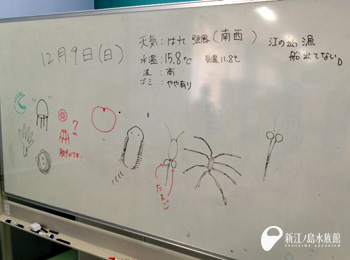 12月9日(日)
天気:はれ 強風(南西)
水温:15.8℃ 気温11.8℃
流:南
ゴミ:やや有り
江の島漁
船出てない。
?
たまご
新江ノ島水族館
ENOSHIMA AQUARIUM